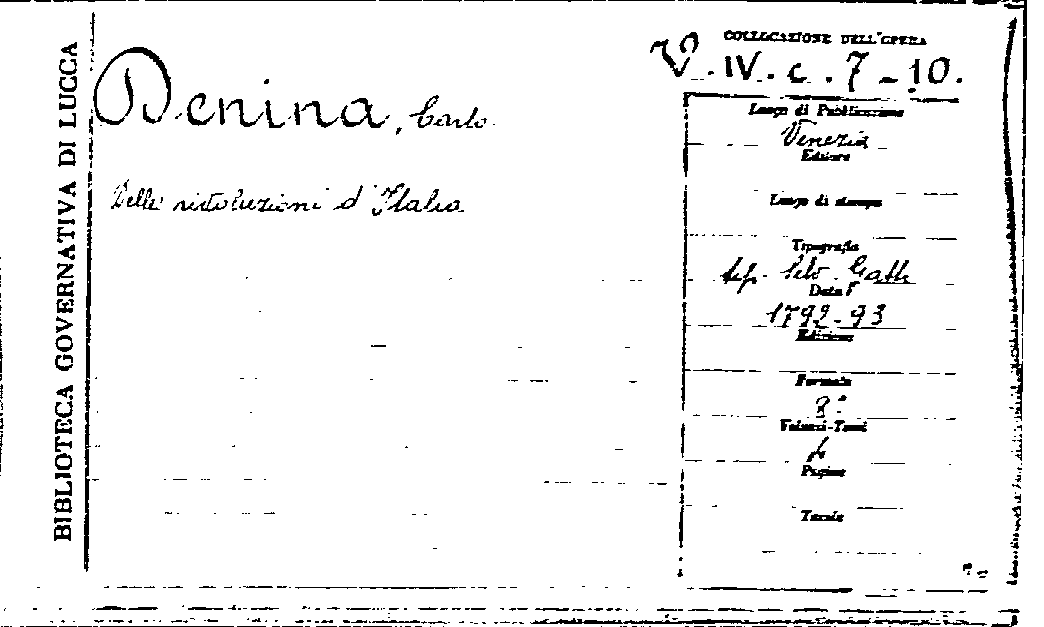 BIBLIOTECA GOVERNATIVA DI LUCCA
Denina, Carlo
Delle rivoluzioni d'Italia
COLLOCAZIONE DELL'OPERA
V. IV. c. 7-10.
Luogo di Pubblicazione
Venezia
Editore
Luogo di stampa
Tipografia
tip. Gatti
Data
1792-93
Edizione
Formato
8°
Volumi-Tomi
4
Pagine
Tavole